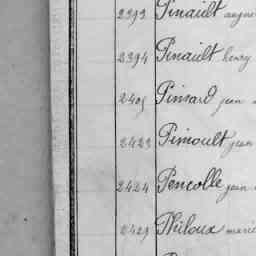 2393 Pinault augus
2394 Pinault henry
2405 Pinsard jean
2423 Pimoult jean
2424 Pencolle jean
2429 Philoux marie